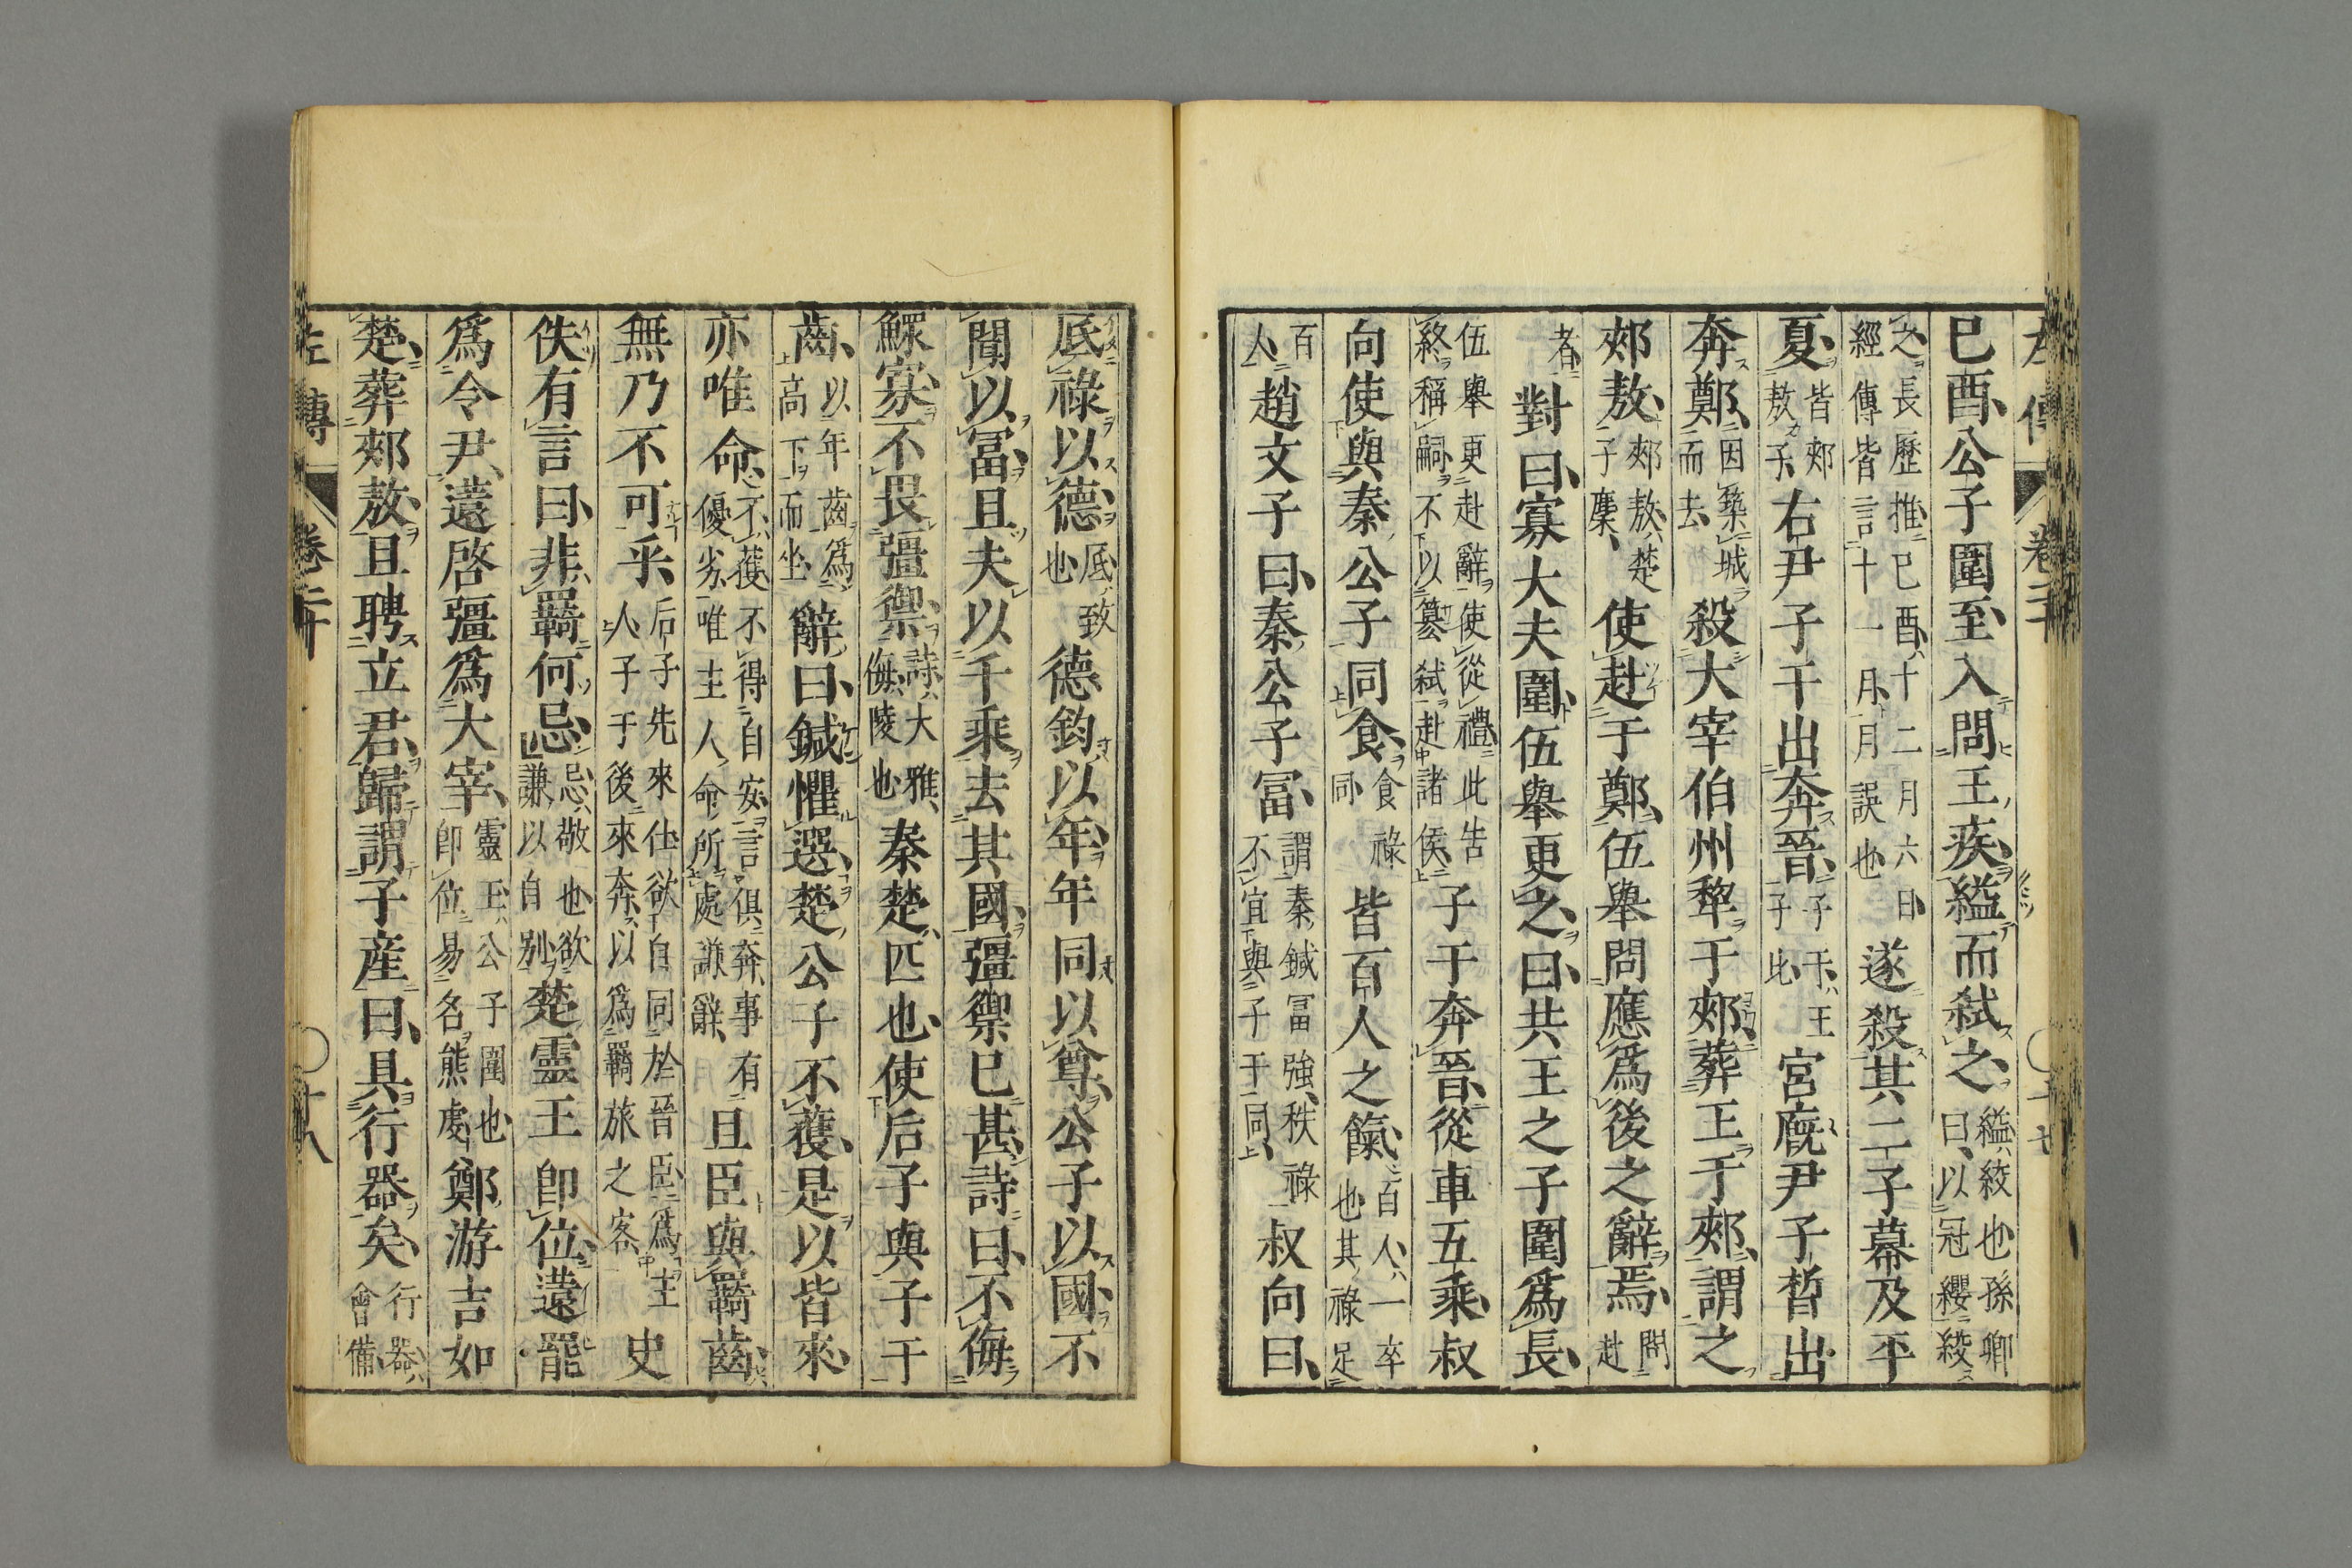 左傳 卷二十
己酉公子圍至入問王疾縊而弑之縊絞也孫卿曰以冠纓絞
之長歷推己酉十二月六日經傳皆言十一月月誤也遂殺其二子幕及平
夏皆郟敖子右尹子干出奔晉子干王子比宮廐尹子晳出
奔鄭因築城而去殺大宰伯州犂于郟葬王于郟謂之
郟敖郟敖楚子麇使赴于鄭伍舉問應爲後之辭焉問赴
者對曰寡大夫圍伍舉更之曰共王之子圍爲長
伍舉更赴辭使從禮此告終稱嗣不以簒弑赴諸侯子干奔晉從車五乘叔
向使與秦公子同食食祿同皆百人之餼百人一卒也其祿足
百人趙文子曰秦公子冨謂秦鍼冨強秩祿不宜與子干同叔向曰
底祿以德底致也德鈞以年年同以尊公子以國不
聞以冨且夫以千乘去其國彊禦已甚詩曰不侮
鰥寡不畏彊禦詩大雅侮陵也秦楚匹也使后子與子干
齒以年齒爲高下而坐辭曰鍼懼選楚公子不獲是以皆來
亦唯命不獲不得自安言俱奔事有優劣唯主人命所處謙辭且臣與羇齒
無乃不可乎后子先來仕欲自同於晉臣爲主人子干後來奔以爲羇旅之客史
佚有言曰非羇何忌忌敬也欲謙以自別楚靈王卽位薳罷
爲令尹薳啓彊爲大宰靈王公子圍也卽位易名熊虔鄭游吉如
楚葬郟敖且聘立君歸謂子産曰具行器矣行器會備
左傳 卷二十 十八